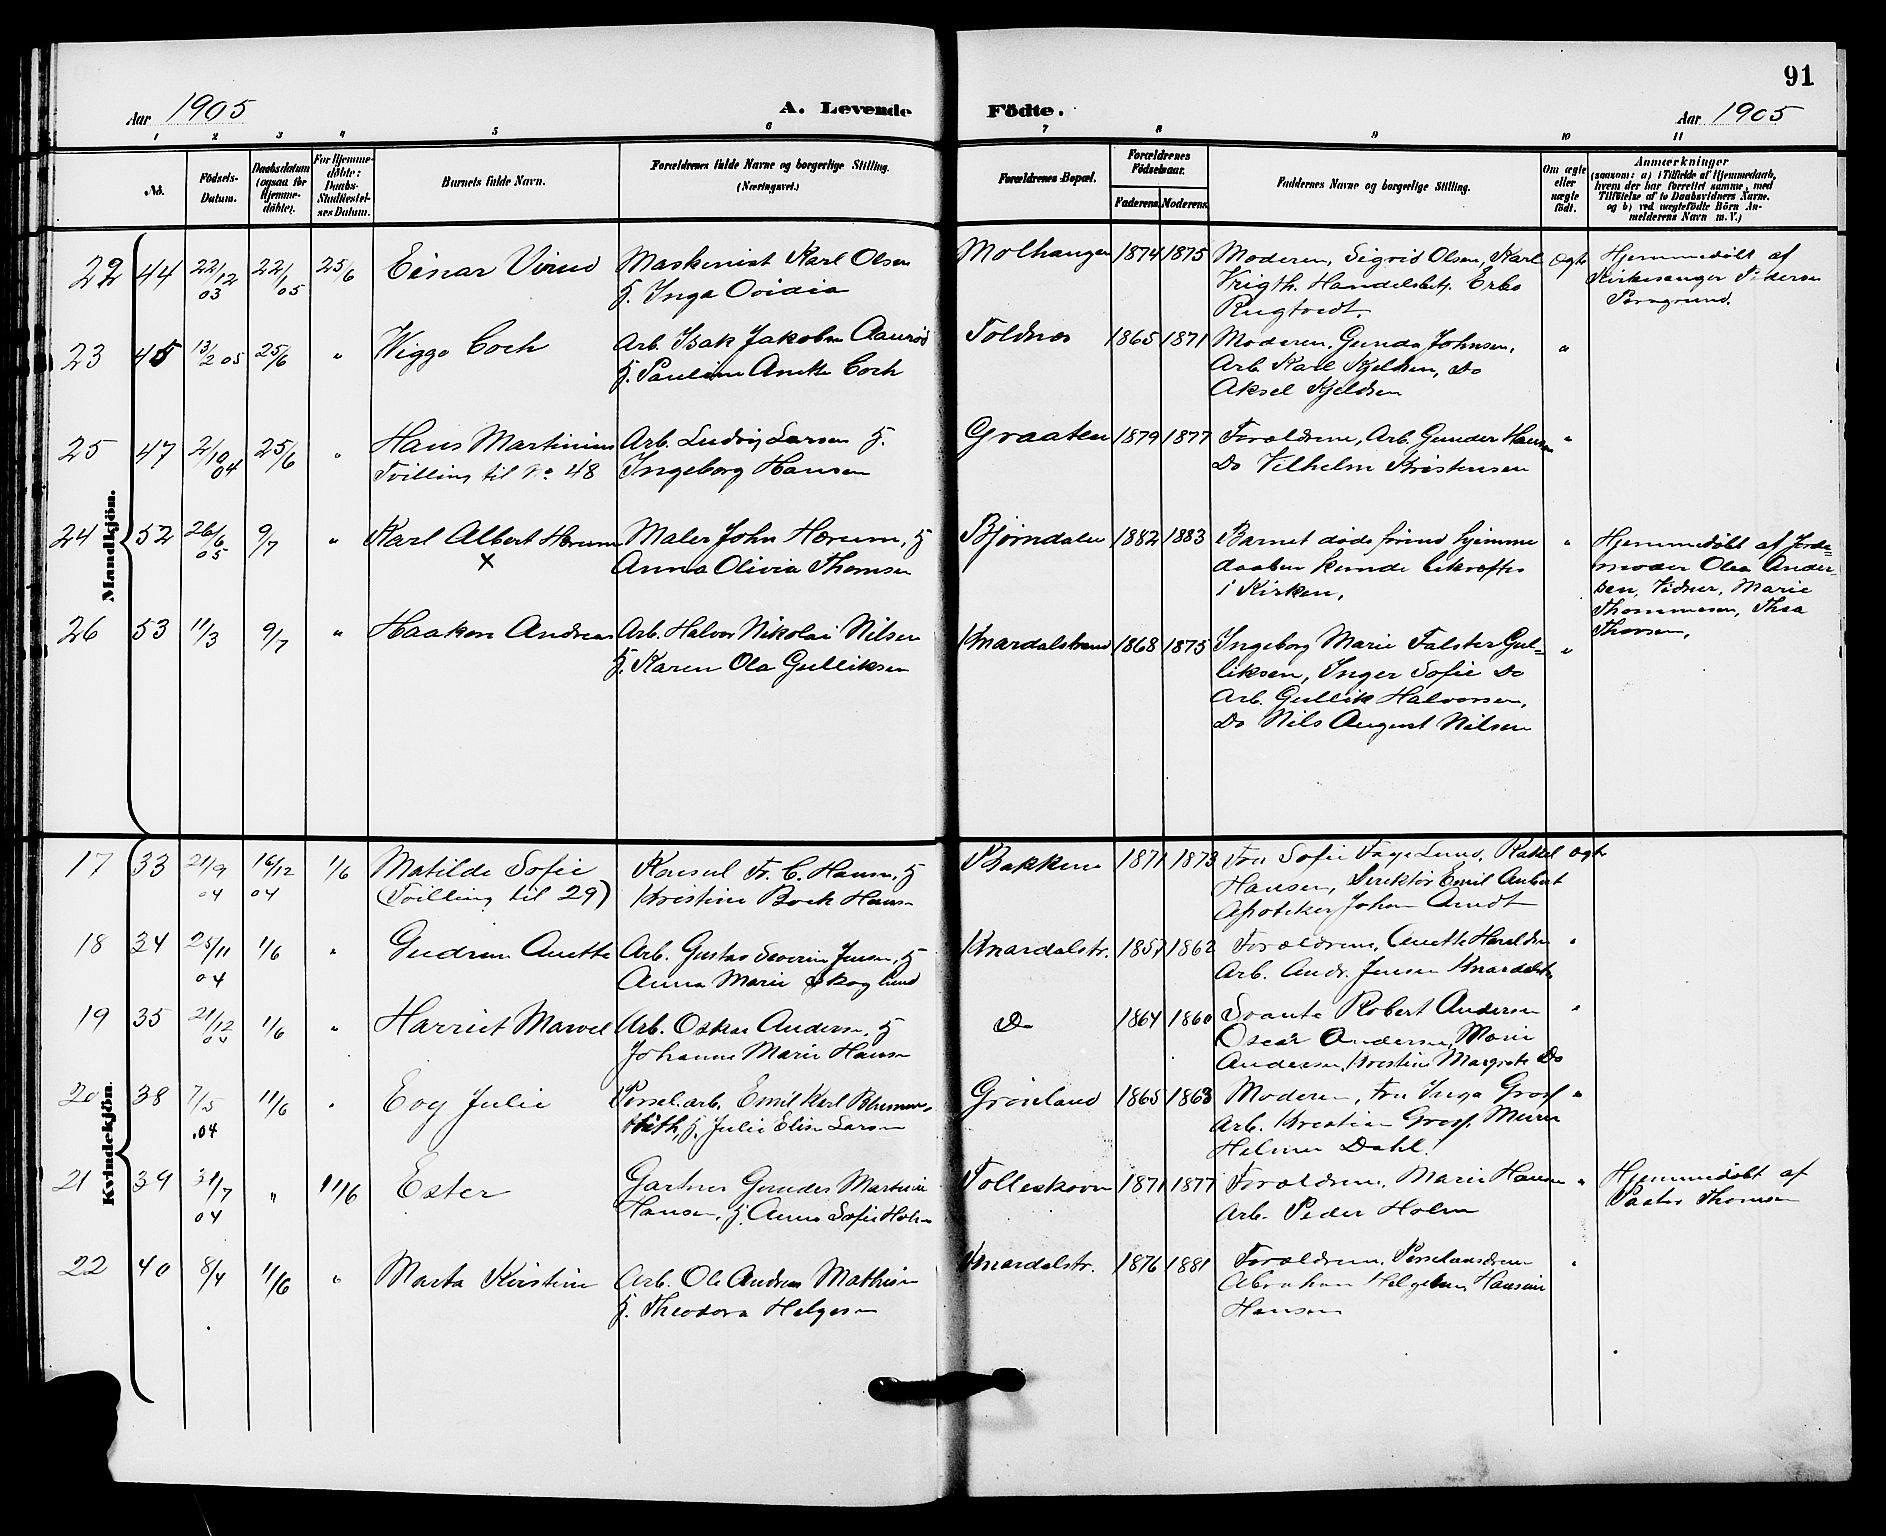 91
Aar 1905
A. Levende Födte.
Aar 1905
1 2 3 4 5 6 7 8 9 10 11
No.
Födsels-Datum.
Daabsdatum (ogsaa for Hjemme-döbte).
For Hjemme-döbte: Daabs-Stadfæstel-ses Datum.
Barnets fulde Navn.
Forældrenes fulde Navne og borgerlige Stilling.
(Næringsvei.)
Forældrenes Bopæl.
Forældrenes Födselsaar.
Faderens. Moderens.
Faddernes Navne og borgerlige Stilling.
Om ægte eller uægte født.
Anmærkninger
(saasom: a) i Tilfælde af Hjemmedaab, hvem der har forrettet samme, med Tilföielse af to Daabsvidners Navne, og b) ved uægtefödte Börn An-melderens Navn m. V.)
Mandkjön.
22 44 22/12 03 22/1 05 25/6 Einar
Maskinist Karl Olsen
H. Inga Ovidia
Molhaugen 1874 1875
Moderen, Sigrid Olsen, Karl
Handelsbetj.
Rugtvedt.
ægte
Hjemmedøbt af
Kirkesanger Pedersen
Porsgrund.
23 45 13/2 05 25/6 " Viggo Coch
Arb. Isak Jakobsen
H. Pauline Coch
Toldnes 1865 1871
Moderen, Gunda Johnsen,
Arb. Karl Kjeldsen, Do
Aksel Kjeldsen
"
25 47 2/10 04 25/6 " Hans Martinius
Tvilling til No 48
Arb. Ludvig Larsen H.
Ingeborg Hansen
Graaten 1879 1877
Forældrene, Arb. Gunder Hansen
Do Vilhelm Kristensen
"
24 52 26/6 05 9/7 " Karl Albert Hærum
X
Maler John Hærum, H
Anna Olivia Thomsen
Bjørndalen 1882 1883
Barnet døde førend hjemme
daaben kunde bekræftes
i Kirken,
"
Hjemmedøbt af Jorde-
moder Olea Ander-
sen, Vidner, Marie
Thommesen, Thea
Thorsen,
26 53 11/3 9/7 " Haakon Andreas
Arb. Halvor Nikolai Nilsen
H. Karen Ola Gulliksen
Knardalstrand 1868 1875
Ingeborg Marie Falster Gul-
liksen, Inger Sofie Do
Arb. Gullik Halvorsen,
Do Nils August Nilsen
"
Kvindekjön.
17 33 21/9 04 16/12 04 1/6 Matilde Sofie
(Tvilling til 29)
Konsul Fr. C. Hansen, H
Kristine Bock Hansen
Bakken 1871 1873
Fru Sofie Faye Lund, Rakel
Hansen, Direktör Emil Aubert
Apoteker Johan Arndt
ægte
18 34 25/11 04 1/6 " Gudrun Anette
Arb. Gustav Severin Jensen, H
Anna Marie Skoglund
Knardalstr. 1857 1862
Forældrene, Anette Haraldsen
Arb. Andr. Jensen Knardalstr
"
19 35 21/12 04 1/6 " Harriet
Arb. Oskar Andersen, H
Johanne Marie Hansen
Do 1864 1860
Svante Robert Andersen
Oscar Andersen, Marie
Andersen, Kristine Margrete Do
"
20 38 7/5 .04 11/6 " Eog Julie
Porsel. arb. Emil Karl
H. Julie Elise Larsen
Grönland 1865 1863
Moderen, Fru Inga
Arb. Kristian Murer
Helmer Dahl.
"
21 39 31/7 04 " 11/6 Ester
Gartner Gunder Martin
Hansen, H. Anna Sofie Holm
Tolleskoven 1871 1877
Forældrene, Marie Hansen
Arb. Peder Holm
"
Hjemmedøbt af
Pastor Thomsen
22 40 8/4 11/6 " Marta Kirstine
Arb. Ole Andreas Mathisen
H. Theodora Helgesen
Knardalstr. 1876 1881
Forældrene,
Abraham Helgesen,
Hansen
"